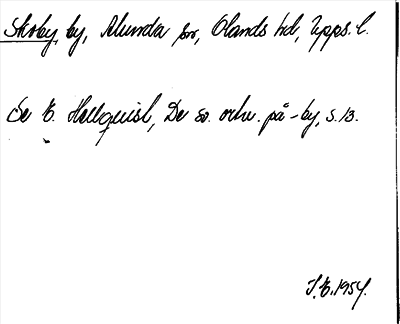 Skoby, by, Alunda sn, Olands hd, Upps. l.
Se E. Hellquist, De sv. ortn. på -by, s. 13.
J. E. 1954.